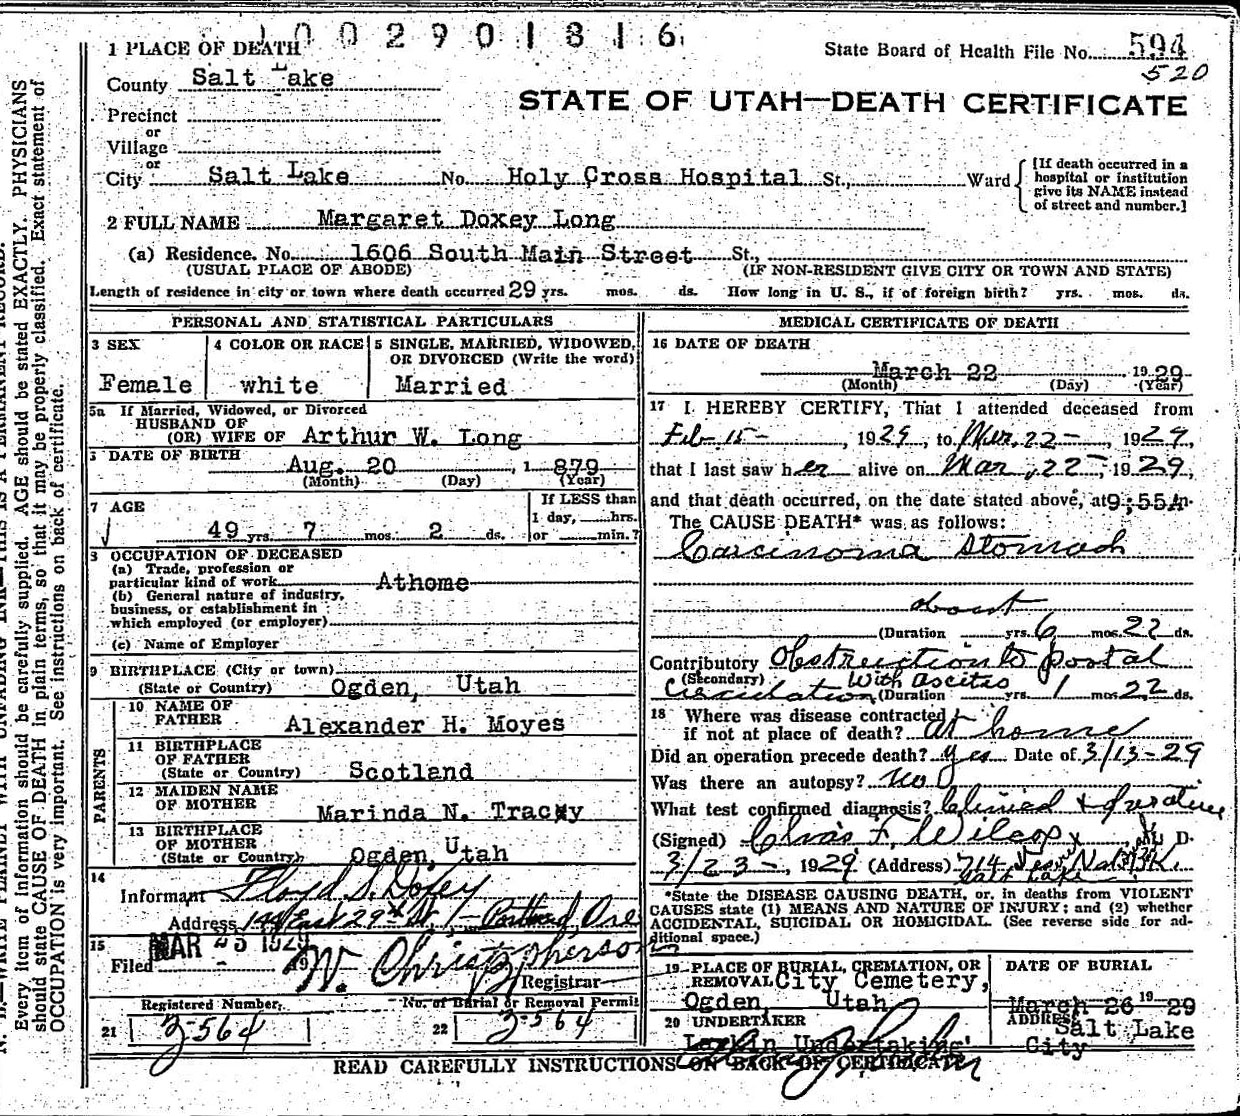 1002901816
1 PLACE OF DEATH
State Board of Health File No. 594
520
County Salt Lake
STATE OF UTAH—DEATH CERTIFICATE
Precinct
or
Village
or
City Salt Lake No. Holy Cross Hospital St., Ward
[If death occurred in a
hospital or institution
give its NAME instead
of street and number.]
2 FULL NAME Margaret Doxey Long
(a) Residence. No. 1606 South Main Street St.,
(USUAL PLACE OF ABODE) (IF NON-RESIDENT GIVE CITY OR TOWN AND STATE)
Length of residence in city or town where death occurred 29 yrs. mos. ds. How long in U. S., if of foreign birth? yrs. mos. ds.
PERSONAL AND STATISTICAL PARTICULARS
3 SEX
Female
4 COLOR OR RACE
white
5 SINGLE, MARRIED, WIDOWED,
OR DIVORCED (Write the word)
Married
5a If Married, Widowed, or Divorced
HUSBAND OF
(OR) WIFE OF Arthur W. Long
DATE OF BIRTH
Aug. 20, 1879
(Month) (Day) (Year)
7 AGE
49 yrs. 7 mos. 2 ds.
If LESS than
1 day, hrs.
or min.?
8 OCCUPATION OF DECEASED
(a) Trade, profession or
particular kind of work Athome
(b) General nature of industry,
business, or establishment in
which employed (or employer)
(c) Name of Employer
9 BIRTHPLACE (City or town)
(State or Country) Ogden, Utah
PARENTS
10 NAME OF
FATHER Alexander H. Moyes
11 BIRTHPLACE
OF FATHER
(State or Country) Scotland
12 MAIDEN NAME
OF MOTHER Marinda N. Tracy
13 BIRTHPLACE
OF MOTHER
(State or Country) Ogden, Utah
14
Informant Floyd S. Doxey
Address East 29th St. Portland, Ore
15 MAR 25 1929
Filed 19 W. Christopherson
Registrar
Registered Number
21 3-564
No. of Burial or Removal Permit
22 3-564
MEDICAL CERTIFICATE OF DEATH
16 DATE OF DEATH
March 22, 1929
(Month) (Day) (Year)
17 I HEREBY CERTIFY, That I attended deceased from
Feb-15-, 1929, to Mar. 22-, 1929,
that I last saw her alive on Mar, 22-, 1929,
and that death occurred, on the date stated above, at 9:55A m.
The CAUSE DEATH* was as follows:
Carcinoma Stomach
about
(Duration yrs. 6 mos. 22 ds.
Contributory Obstruction to portal
(Secondary) With ascites
Circulation (Duration yrs. 1 mos. 22 ds.
18 Where was disease contracted
if not at place of death? At home
Did an operation precede death? yes Date of 3/13-29
Was there an autopsy? No
What test confirmed diagnosis? Clinical +
(Signed) Chas. F. Wilcox, M. D.
3/23-, 1929 (Address) 714
Salt Lake
*State the DISEASE CAUSING DEATH, or, in deaths from VIOLENT
CAUSES state (1) MEANS AND NATURE OF INJURY; and (2) whether
ACCIDENTAL, SUICIDAL OR HOMICIDAL. (See reverse side for ad-
ditional space.)
19 PLACE OF BURIAL, CREMATION, OR
REMOVAL City Cemetery,
Ogden, Utah
DATE OF BURIAL
March 26 1929
20 UNDERTAKER
Larkin Undertaking
ADDRESS
Salt Lake
City
READ CAREFULLY INSTRUCTIONS ON BACK OF CERTIFICATE
N. B.—WRITE PLAINLY WITH UNFADING INK—THIS IS A PERMANENT RECORD.
Every item of information should be carefully supplied. AGE should be stated EXACTLY. PHYSICIANS
should state CAUSE OF DEATH in plain terms, so that it may be properly classified. Exact statement of
OCCUPATION is very important. See instructions on back of certificate.